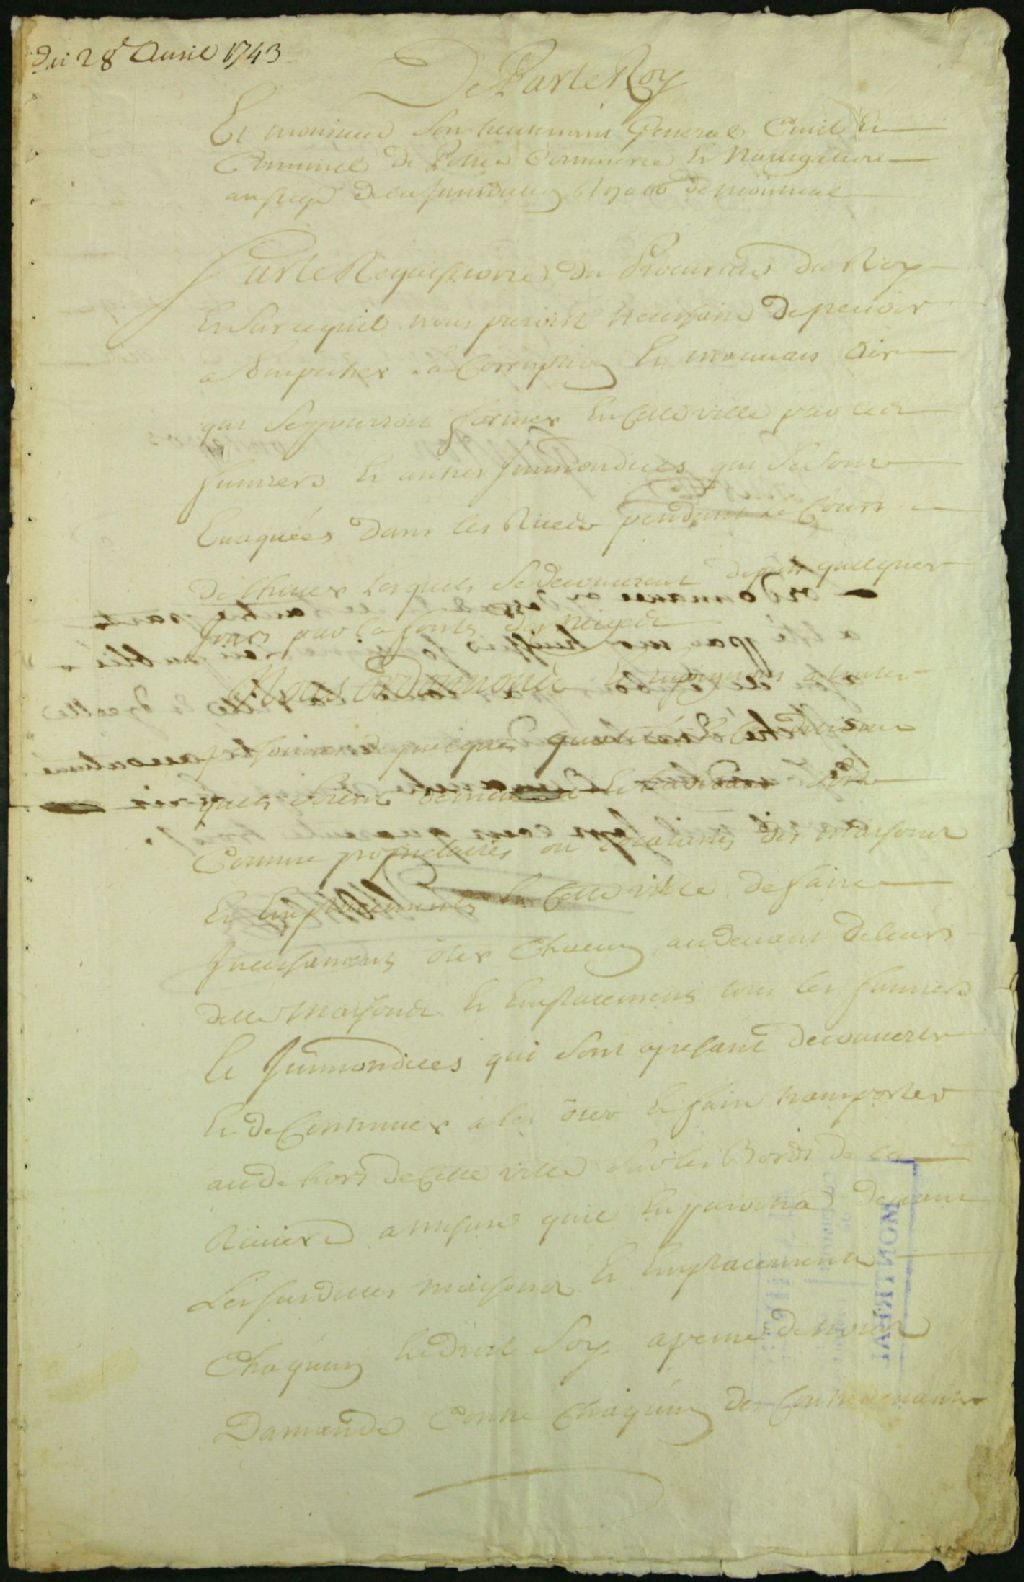 du 28e Avril 1743
De Par le Roy
Et monsieur Son lieutenant General Civil Et
Criminel de Police Commerce Et Navigation
au siege de la Jurisdiction Royalle de montreal
Sur le Requisitoire du Procureur du Roy
Et Sur ce quil nous paroist necessaire de pouvoir
a Empecher la Corruption Et mauvais air
qui Se pouroit former En Cette ville par les
fumiers Et autres Immondices qui Se Sont
Evaqués dans les Rües pendant le Cours
de lhiver lesquels Se decouvrent depuis quelques
jours par la fonte des neiges
Nous Ordonnons Et Enjoignons a toutes
personnes de quelques qualité Et Condition
quels Soient
Comme proprietaires ou locataires des maisons
Et Emplacements En Cette ville de faire
Incessament ôter Chacun au devant de leurs
dttes maisons Et Emplacements tous les fumiers
Et Immondices qui Sont apresent decouverts
Et de Continuer a les ôter Et faire transporter
au de hors de Cette ville Sur les Bords de la
Riviere a mesure quil En paroitra devant
Les susdittes maisons Et Emplacements
Chaqu'un Endroit Soy a peine de
Damande Contre Chaqu'un des Contrevenants
MONTREAL